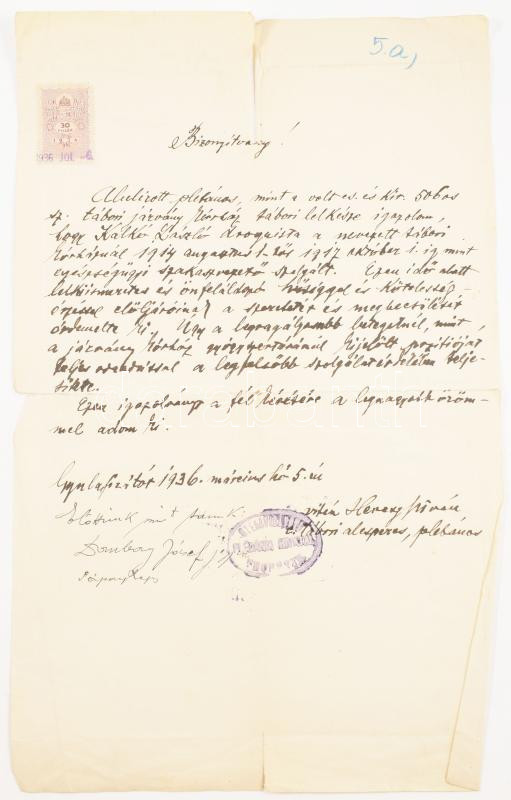 5.a,
30
1936 JUL -6.
Bizonyítvány!
Alulirott plebános, mint a volt cs. és kir. 506os
sz. tábori járvány kórház tábori lelkésze igazolom,
hogy Kálkó László droguista a nevezett tábori
kórháznál 1914 augusztus 1-től 1917 október 1.ig mint
egészségügyi szolgált. Ezen idő alatt
lelkiismeretes és önfeláldozó hűséggel és kötelesség-
érzéssel előljáróinak a szeretetét és megbecsülését
érdemelte ki. Ugy a legragályosabb betegeknél, mint
a járvány kórház kijelölt pozitióját
teljes odaadással a legfelsőbb szolgálat érdekében telje-
sitette.
Ezen igazolványt a fél kérésére a legnagyobb öröm-
mel adom ki.
Gyulafirátót 1936. március hó 5.én
Előttünk mint tanuk: vitéz Iván
t. tábori alesperes, plebános
Dombay József